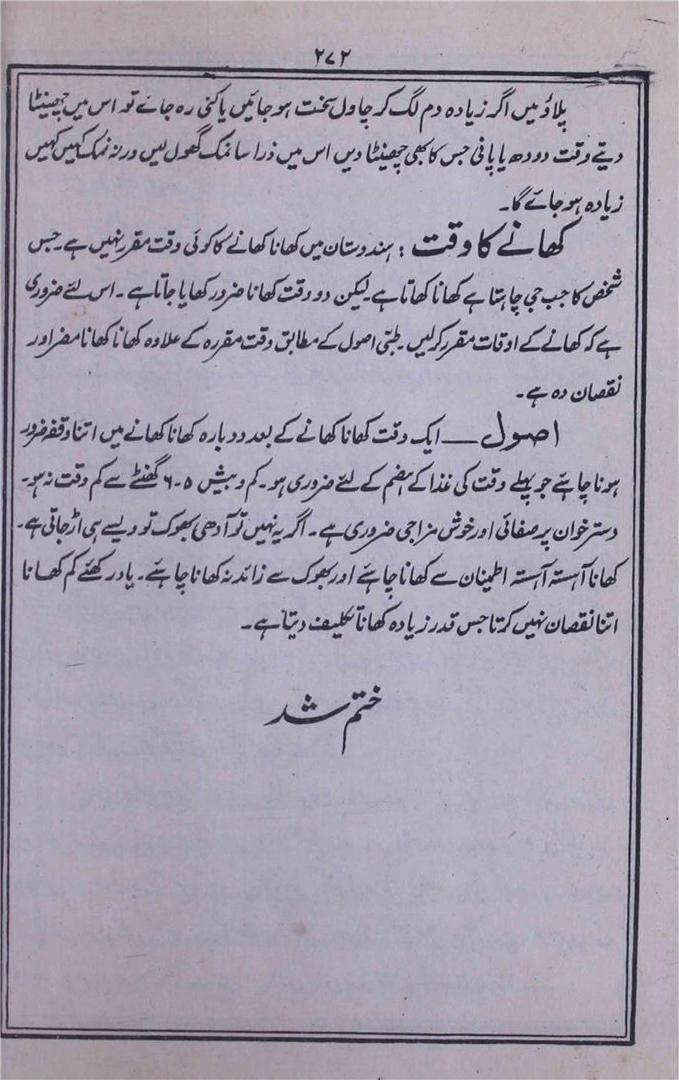 ۲۷۲
پلاؤ میں اگر زیادہ دم لگ کر چاول سخت ہو جائیں یا کنی رہ جائے تو اس میں چھینٹا
دیتے وقت دودھ یا پانی جس کا بھی چھینٹا دیں اس میں ذرا سا نمک گھول لیں ورنہ نمک کہیں کہیں
زیادہ ہو جائے گا۔
کھانے کا وقت : ہندوستان میں کھانا کھانے کا کوئی وقت مقرر نہیں ہے۔ جس
شخص کا جب جی چاہتا ہے کھانا کھاتا ہے لیکن دو وقت کھانا ضرور کھایا جاتا ہے۔ اس لئے ضروری
ہے کہ کھانے کے اوقات مقرر کرلیں۔ طبّی اصول کے مطابق وقت مقررہ کے علاوہ کھانا کھانا مضر اور
نقصان دہ ہے۔
اصول ــــ ایک وقت کھانا کھانے کے بعد دوبارہ کھانا کھانے میں اتنا وقفہ ضرور
ہونا چاہئے جو پہلے وقت کی غذا کے ہضم کے لئے ضروری ہو۔ کم و بیش ۵-۶ گھنٹے سے کم وقت نہ ہو۔
دسترخوان پر صفائی اور خوش مزاجی ضروری ہے۔ اگر یہ نہیں تو آدھی بھوک تو ویسے ہی اڑ جاتی ہے۔
کھانا آہستہ آہستہ اطمینان سے کھانا چاہئے اور بھوک سے زائد نہ کھانا چاہئے۔ یاد رکھئے کم کھانا
اتنا نقصان نہیں کرتا جس قدر زیادہ کھانا تکلیف دیتا ہے۔
ختم شد